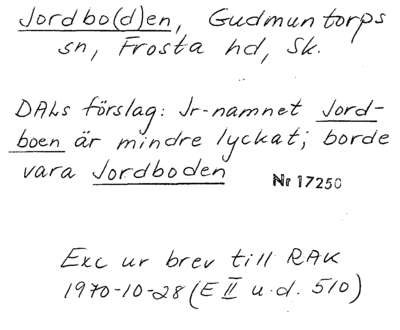 Jordbo(d)en, Gudmuntorps
sn, Frosta hd, Sk.
DALs förslag: Jr-namnet Jord-
boen är mindre lyckat; borde
vara Jordboden
Nr 17250
Exc ur brev till RAK
1970-10-28 (E II u.d. 510)